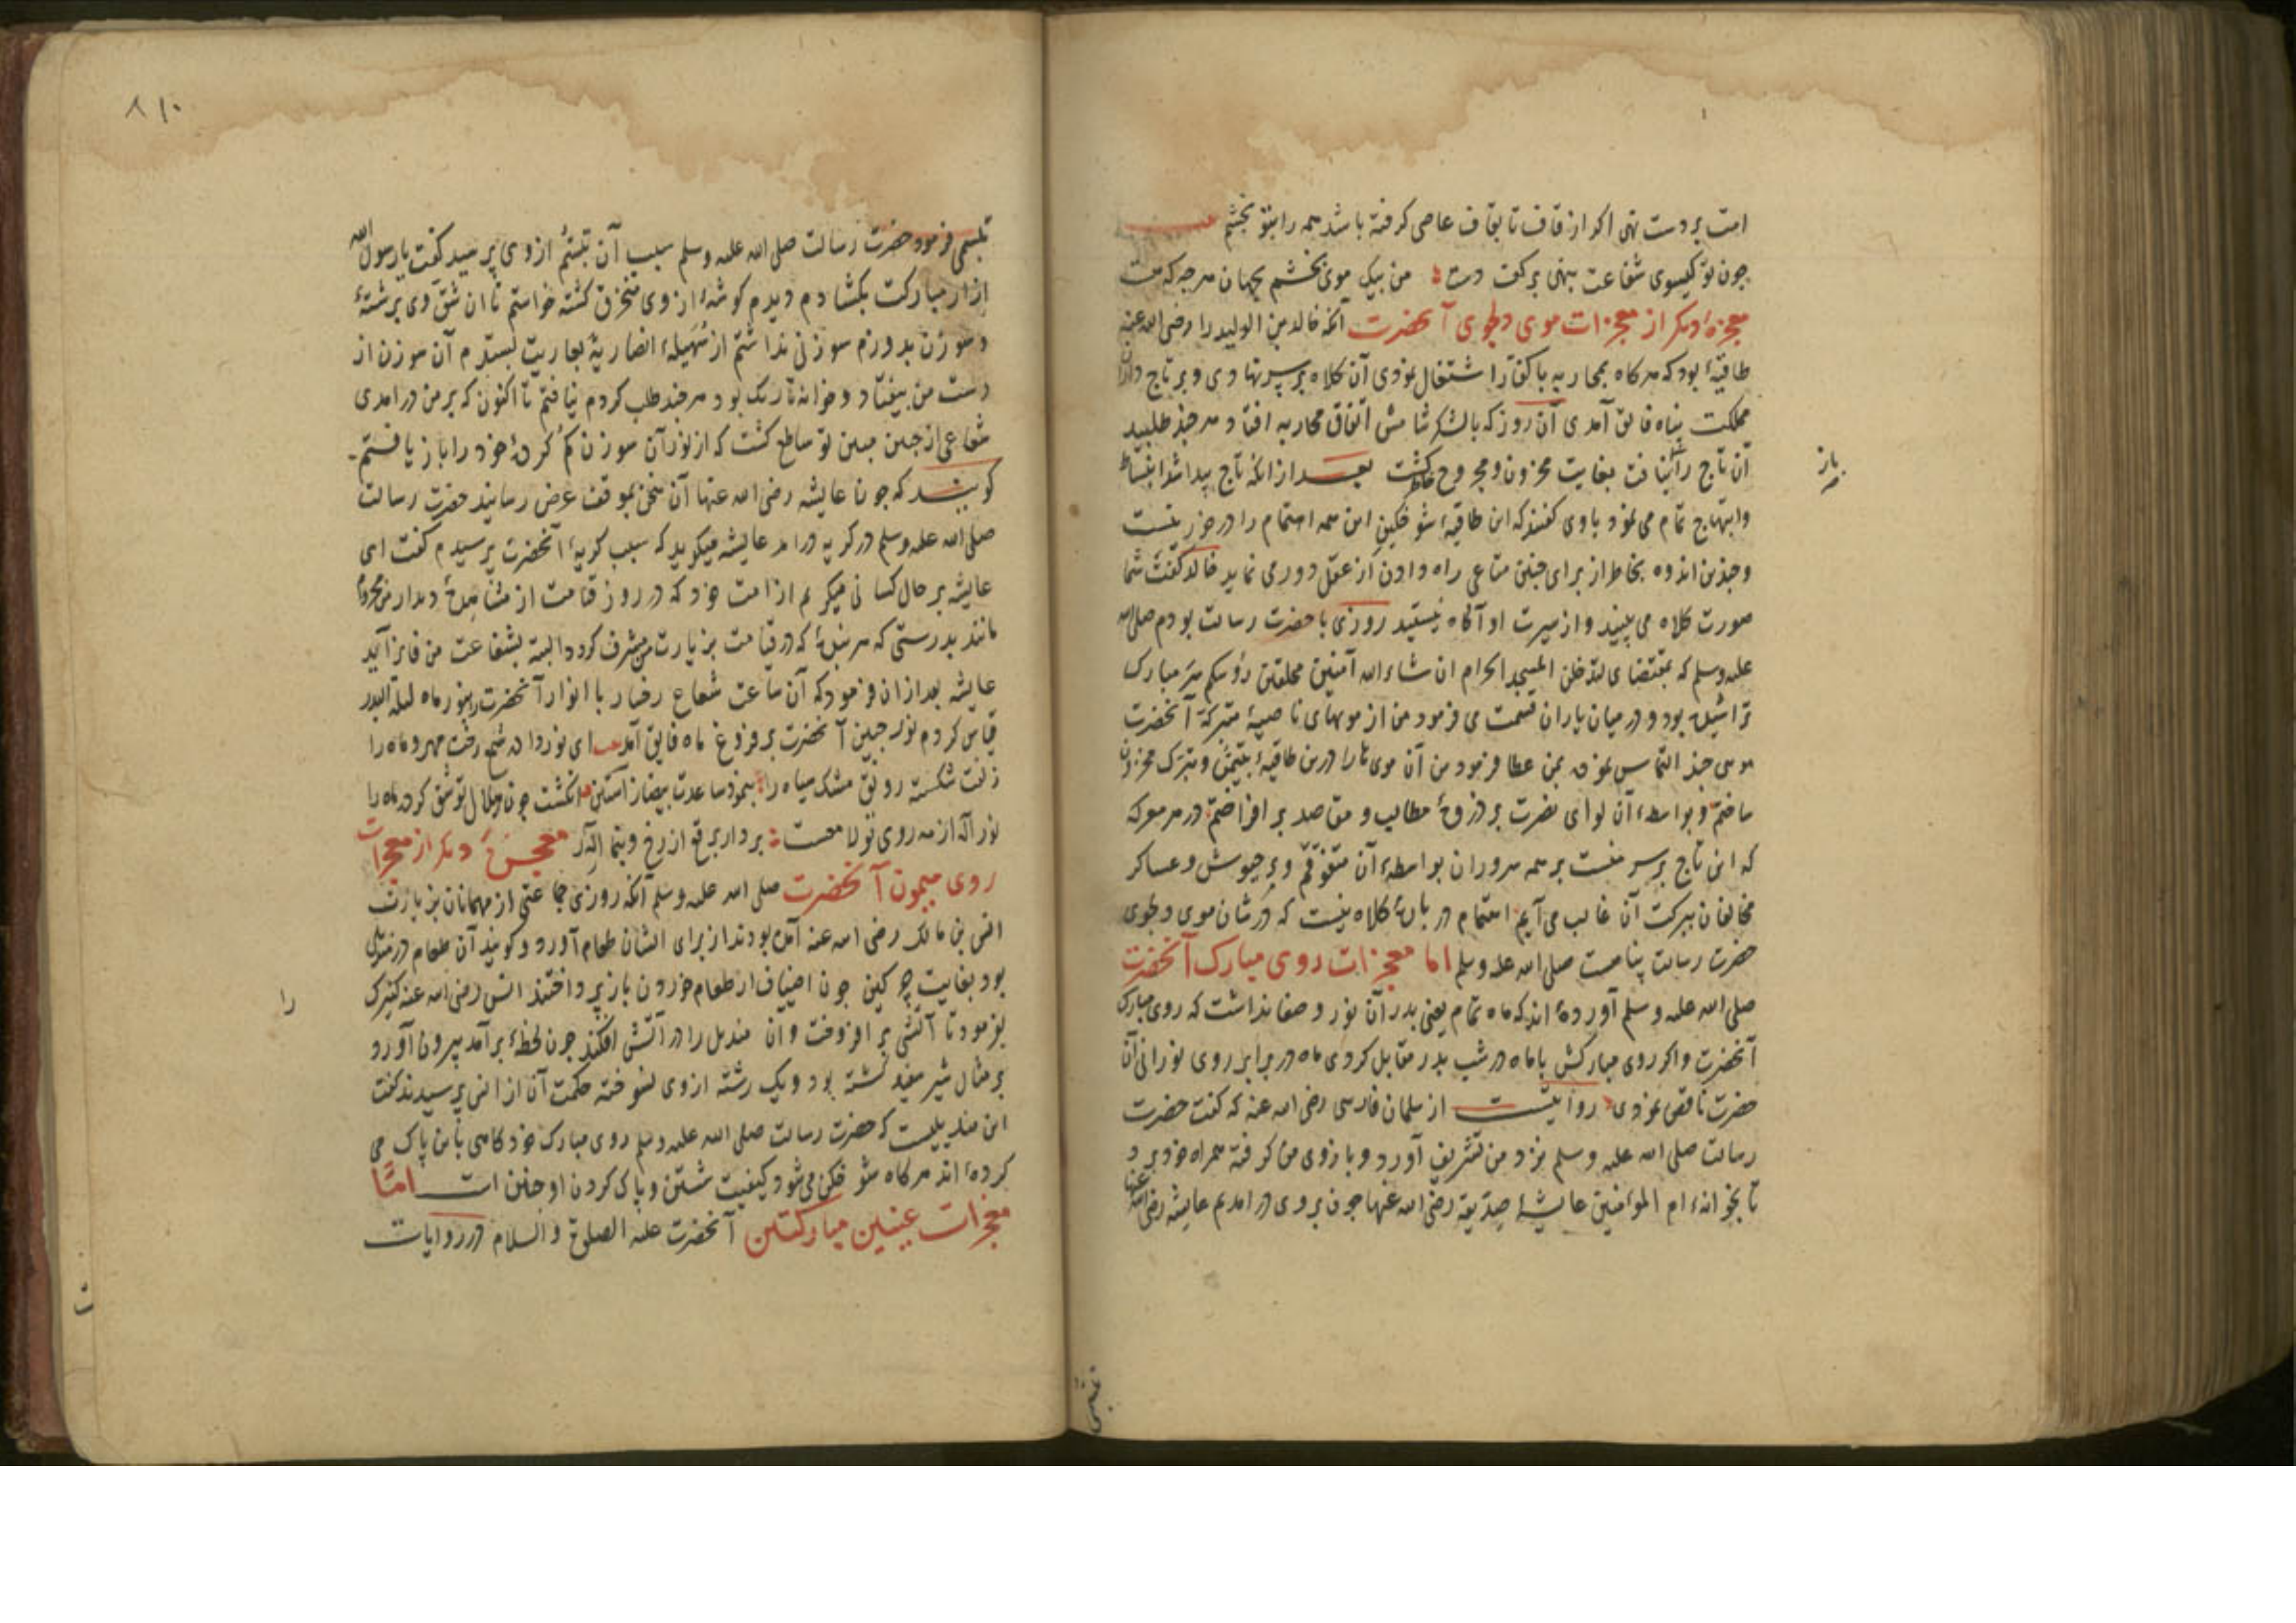 امت بر دست نهی اکر از قاف تا بقاف عاصی کرفته باشد همه را بتو بخشم
چون تو کیسوی شفاعت بنهی بر کف دست من بیک موی بخشم بجهان هر چه که هست
معجزهٔ دیکر از معجزات موی دلجوی آنحضرت آنکه خالد بن الولید را رضی الله عنه
طاقیهٔ بود که هر کاه بمحاربه با کفار اشتغال نمودی آن کلاه بر سر نهادی و بر تاج داران
مملکت پناه فایق آمدی آن روز که با لشکر شامش اتفاق محاربه افتاد هر چند طلبید
آن تاج را نیافت بغایت محزون و مجروح خاطر کشت بعد از انکه تاج پیدا شد انبساط
باز
وابتهاج تمام می نمود با وی کفتند که این طاقیهٔ شوخکین این همه اهتمام را در خور نیست
و چندین اندوه بخاطر از برای چنین متاعی راه دادن از عقل دور می نماید خالد کفت شما
صورت کلاه می بینید و از سیرت او آکاه نیستید روزی با حضرت رسالت بودم صلی الله
علیه وسلم که بمقتضای لتدخلن المسجد الحرام ان شاء الله آمنین محلقین رؤسکم سر مبارک
تراشیده بود و در میان یاران قسمت می فرمود من از مویهای ناصیهٔ متبرکهٔ آنحضرت
موی چند التماس نمودم بمن عطا فرمود من آن موی ها را درین طاقیهٔ بتیمّن و تبرک مخزون
ساختم و بواسطهٔ آن لوای نصرت بر ذروهٔ مطالب و مقاصد بر افراختم در هر معرکه
که این تاج بر سر منست بر همه سروران بواسطهٔ آن متفوّقم و بر جیوش و عساکر
مخالفان ببرکت آن غالب می آیم اهتمام در بارهٔ کلاه نیست که در شان موی دلجوی
حضرت رسالت پناهست صلی الله علیه وسلم اما معجزات روی مبارک آنحضرت
صلی الله علیه وسلم آورده اند که ماه تمام یعنی بدر آن نور و صفا نداشت که روی مبارک
آنحضرت و اکر روی مبارکش با ماه در شب بدر مقابل کردی ماه در برابر روی نورانی آن
حضرت ناقص نمودی روایتست از سلمان فارسی رضی الله عنه که کفت حضرت
رسالت صلی الله علیه وسلم نزد من تشریف آورد و بازوی من کرفته همراه خود برد
تا بخانهٔ ام المؤمنین عایشهٔ صدیقه رضی الله عنها چون بر وی در امدیم عایشه رضی الله عنها
تبسمی
تبسمی فرمود حضرت رسالت صلی الله علیه وسلم سبب آن تبسّم از وی پرسید کفت یا رسول الله
ازار مبارکت بکشادم دیدم کوشهٔ از وی منخرق کشته خواستم تا ان شقّ وی برشتهٔ
و سوزن بدوزم سوزنی نداشتم از سُهَیلهٔ انصاریهٔ بعاریت بستدم آن سوزن از
دست من بیفتاد و خانه تاریک بود هر چند طلب کردم نیافتم تا اکنون که بر من درامدی
شعاعی از جبین مبین تو ساطع کشت که از نور آن سوزن کم کردهٔ خود را باز یافتم
کویند که چون عایشه رضی الله عنها آن سخن بموقف عرض رسانید حضرت رسالت
صلی الله علیه وسلم در کریه درامد عایشه میکوید که سبب کریهٔ آنحضرت پرسیدم کفت ای
عایشه بر حال کسانی میکریم از امت خود که در روز قیامت از مشاهدهٔ دیدار من محروم
مانند بدرستی که هر بندهٔ که در قیامت بزیارت من مشرف کردد البته بشفاعت من فایز آید
عایشه بعد ازان فرمود که آن ساعت شعاع رخسار با انوار آنحضرت را بنور ماه لیلة البدر
قیاس کردم نور جبین آنحضرت بر فروغ ماه فایق آمد ای نور داده شمع رخت مهر و ماه را
زلفت شکسته رونق مشک سیاه را بنمود ساعدت بیضا ز آستین انکشت چون هلال تو شق کرد ماه را
نور آله از مه روی تو لامعست بردار برقع از رخ و بنما اله را معجزهٔ دیکر از معجزات
روی میمون آنحضرت صلی الله علیه وسلم آنکه روزی جماعتی از مهمانان بزیارت
انس بن مالک رضی الله عنه آمده بودند از برای ایشان طعام آورد و کویند آن طعام در مندیلی
بود بغایت چرکین چون اضیاف از طعام خوردن باز پرداختند انس رضی الله عنه کنیزک
را
بفرمود تا آتشی بر افروخت و ان مندیل را در آتش افکند چون لحظهٔ برآمد بیرون آورد
بر مثال شیر سفید کشته بود و یک رشته ازوی نسوخته حکمت آن از انس پرسیدند کفت
این مندیلیست که حضرت رسالت صلی الله علیه وسلم روی مبارک خود کاهی باین پاک می
کرده اند هر کاه شوخکن می شود کیفیت شستن و پاک کردن او چنین است امّا
معجزات عینین مبارکتین آنحضرت علیه الصلوة والسلام در روایات